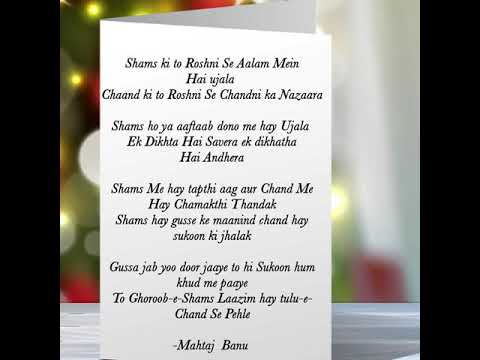 Shams ki to Roshni Se Aalam Mein
Hai ujala
Chaand ki to Roshni Se Chandni ka Nazaara
Shams ho ya aaftaab dono me hay Ujala
Ek Dikhta Hai Savera ek dikhatha
Hai Andhera
Shams Me hay tapthi aag aur Chand Me
Hay Chamakthi Thandak
Shams hay gusse ke maanind chand hay
sukoon ki jhalak
Gussa jab yoo door jaaye to hi Sukoon hum
khud me paaye
To Ghoroob-e-Shams Laazim hay tulu-e-
Chand Se Pehle
-Mahtaj Banu